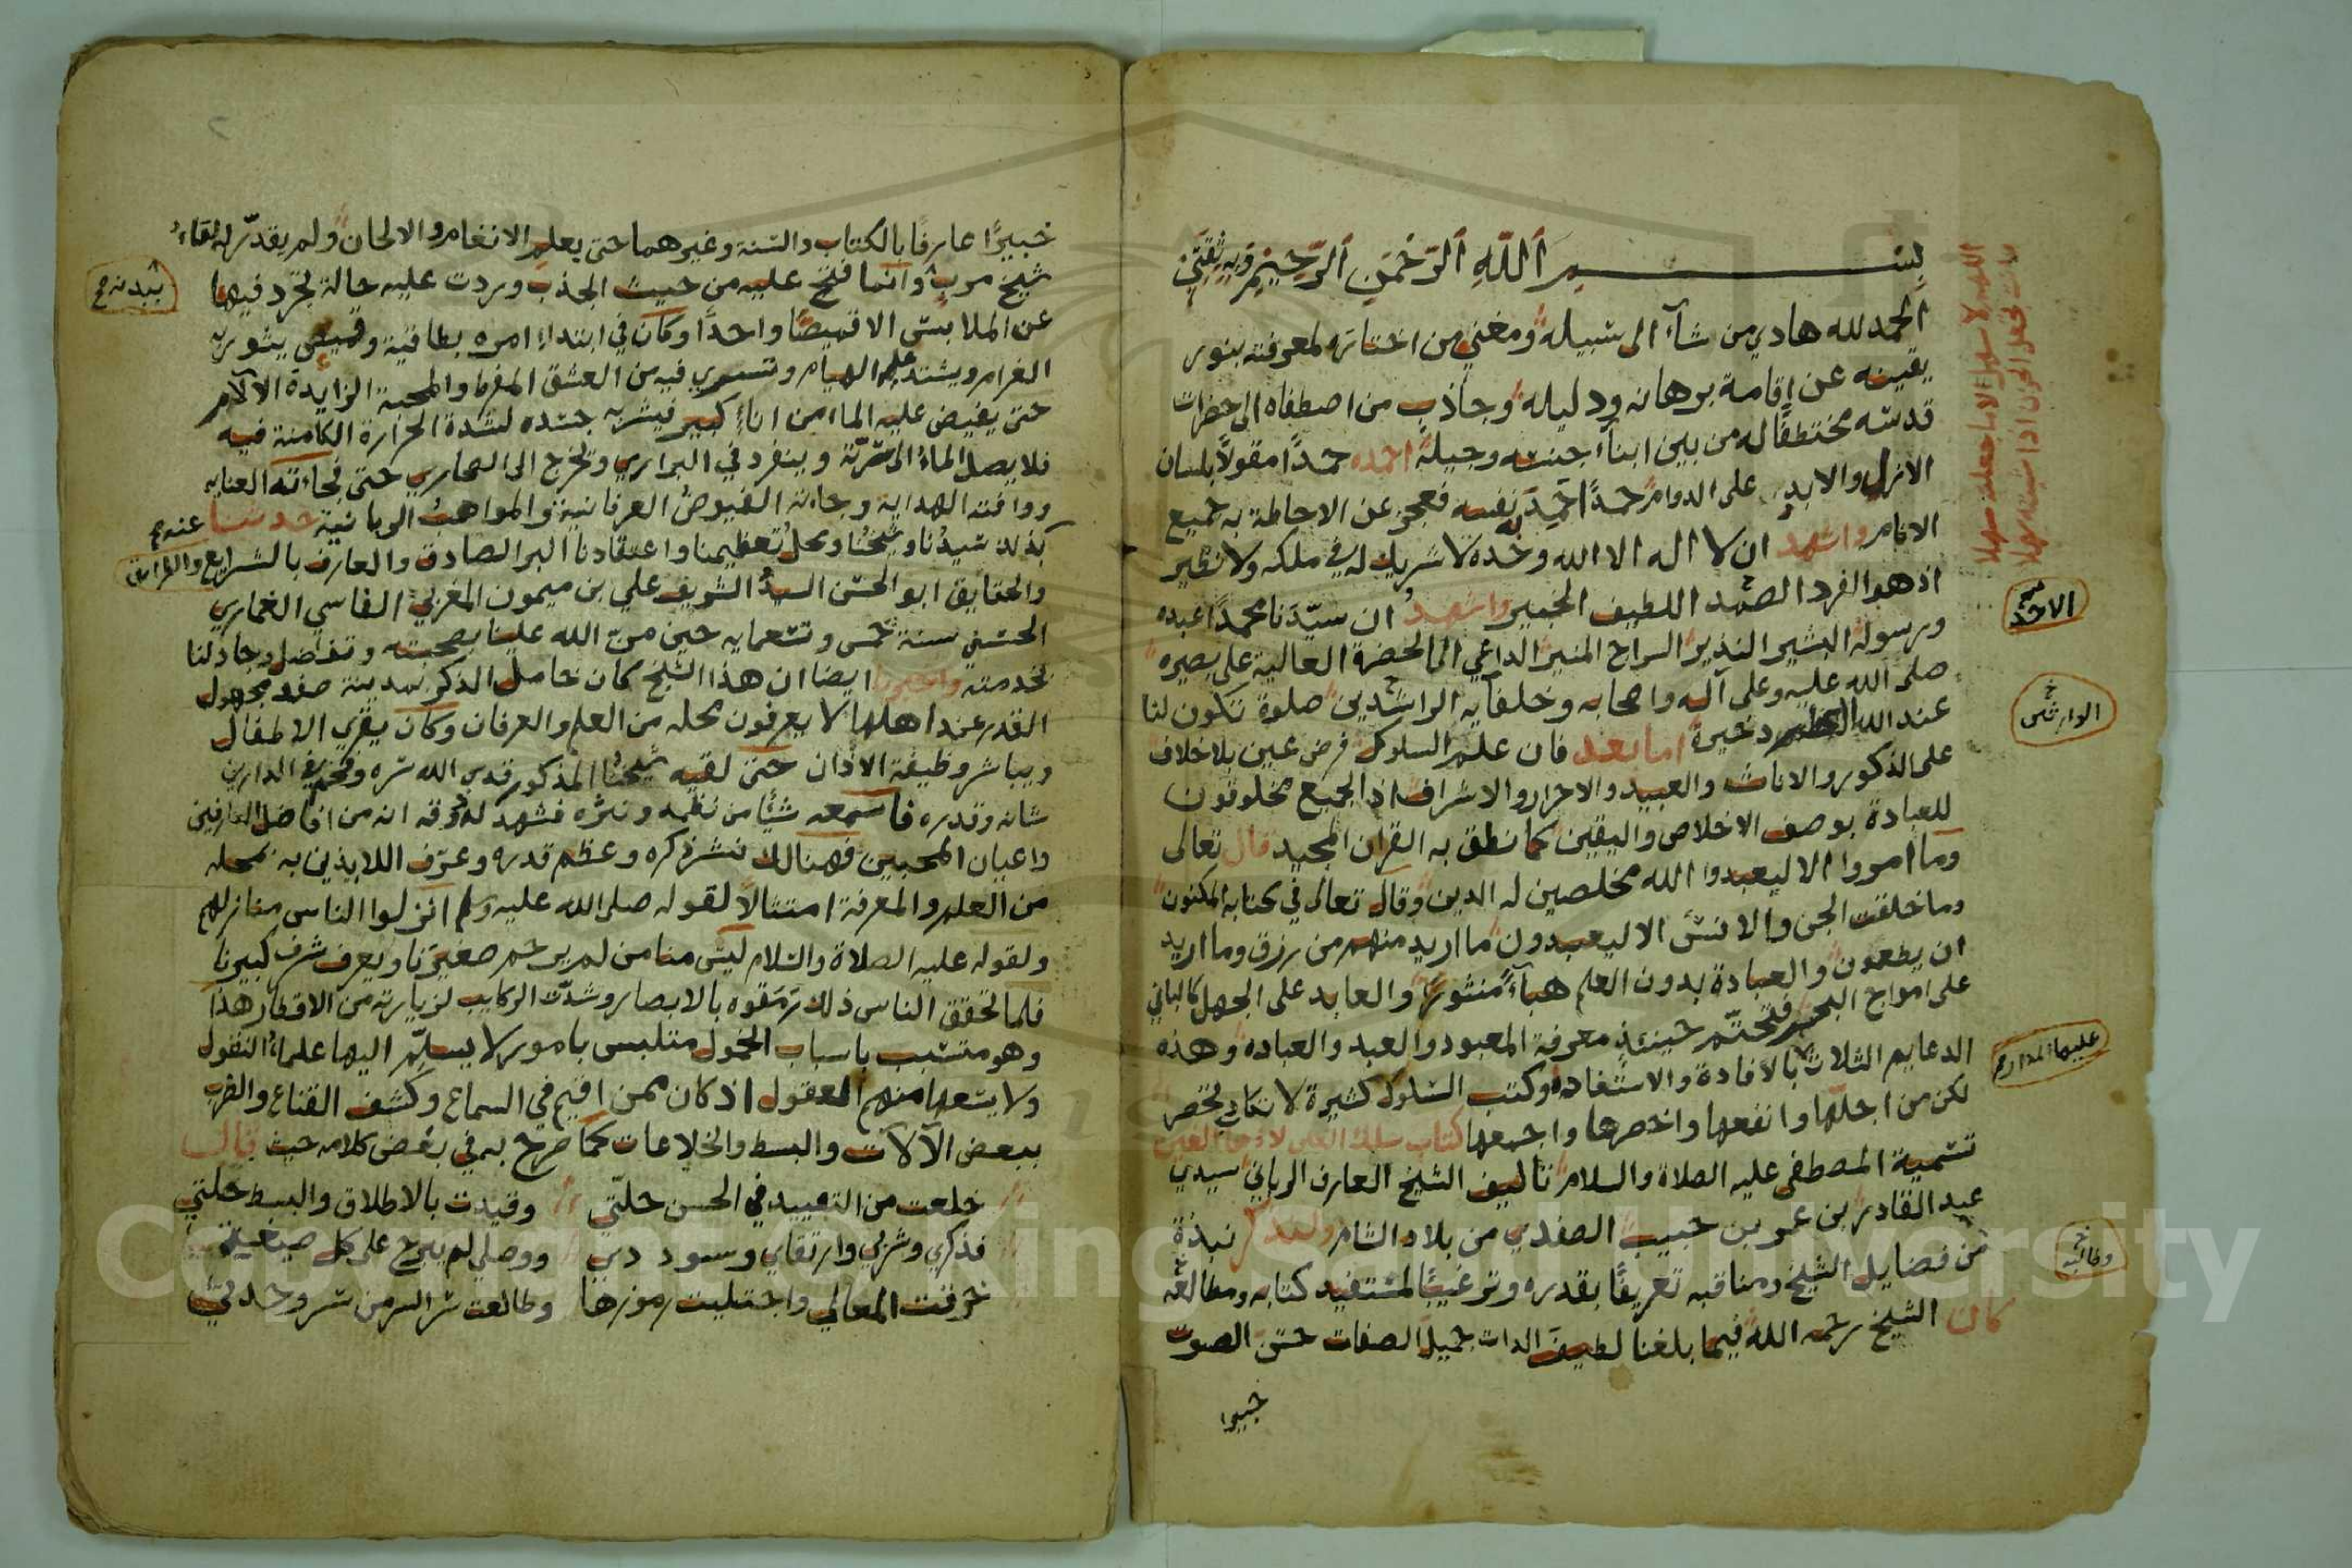 بسم الله الرحمن الرحيم وبه ثقتي
الحمد لله هادي من شآء الى سبيله ومغني من اختاره لمعرفته بنور
يقينه عن إقامة برهانه ودليله وجاذب من اصطفاه الى حضرات
قدسه مختطفًا له من بين ابنآء جنسه وجيله احمده حمدًا مقولًا بلسان
الازل والابد على الدوام حمدًا حمد به نفسه فعجز عن الاحاطة به جميع
الانام واشهد ان لا اله الا الله وحده لا شريك له في ملكه ولا نظير
اذ هو الفرد الصمد اللطيف الخبير واشهد ان سيّدَنا محمدًا عبده
ورسوله البشير النذير السراج المنير الداعي الى الحضرة العالية على بصيره
صلى الله عليه وعلى آله واصحابه وخلفآيه الراشدين صلوة تكون لنا
عند الله العظيم ذخيرة اما بعد فان علم السلوك فرض عين بلا خلاف
على الذكور والاناث والعبيد والاحرار والاشراف اذ الجميع مخلوقون
للعبادة بوصف الاخلاص واليقين كما نطق به القران المجيد قال تعالى
وما امروا الا ليعبدوا الله مخلصين له الدين وقال تعالى في كتابه المكنون
وما خلقت الجن والانس الا ليعبدون ما اريد منهم من رزق وما اريد
ان يطعمون والعبادة بدون العلم هبآءً منثورًا والعابد على الجهل كالباني
على امواج البحر فتحتّم حينئذٍ معرفة المعبود والعبد والعباده وهذه
الدعايم الثلاث بالافادة والاستفاده وكتب السلوك كثيرة لا تكاد تحصر
لكن من اجلّها وانفعها واخصرها واجمعها كتاب سلك العين لاذهاب الغين
تسمية المصطفى عليه الصلاة والسلام تاليف الشيخ العارف الرباني سيدي
عبد القادر بن عمر بن حبيب الصفدي من بلاد الشام ولنذكر نبذة
من فضايل الشيخ ومناقبه تعريفًا بقدره وترغيبًا لمستفيد كتابه ومطالعه
كان الشيخ رحمه الله فيما بلغنا لطيفَ الذات جميلَ الصفات حسنَ الصوت
خبيرا
اللهم لا سهل الا ما جعلته سهلا
وانت تجعل الحزن اذا شئت سهلا
الاحد
الوارثين
عليها المدار
وطالبه
خبيرًا عارفًا بالكتاب والسنة وغيرهما حتى بعلم الانغام والالحان ولم يقدّر له لقاء
شيخ مربٍ وانما فتح عليه من حيث الجذب وردت عليه حالة تجرد فيها
عن الملابس الا قميصًا واحدًا وكان في ابتداء امره بطاقية وقميص يثور به
الغرام ويشتد عليه الهيام وتسري فيه من العشق المفرط والمحبة الزايدة الآلام
حتى يفيض عليه الماء من اناء كبير فيشربه جسده لشدة الحرارة الكامنة فيه
فلا يصل الماء الى سرّته وينفرد في البراري ويخرج الى الصحاري حتى فجاءته العنايه
ووافته الهداية وجاءته الفيوض العرفانية والمواهب الربانية حدثنا
بذلك سيدُنا وشيخُنا ومحل تعظيمنا واعتقادنا البر الصادق والعارف بالشرايع والطرائق
والحقايق ابو الحسن السيدُ الشريف علي بن ميمون المغربي الفاسي الغماري
الحسني سنة خمس وتسعمايه حين منّ الله علينا بصحبته وتفاضل وجاد لنا
بخدمته واخبرنا ايضا ان هذا الشيخ كان خامل الذكر بمدينة صفد مجهول
القدر عند اهلها لا يعرفون محله من العلم والعرفان وكان يقري الاطفال
ويباشر وظيفة الاذان حتى لقيه شيخُنا المذكور قدس الله سره وفخم في الدارين
شانه وقدره فاسمعه شيًا من نظمه ونثره فشهد له ذوقه انه من افاضل العارفين
واعيان المحبين فهنالك نشر ذكره وعظم قدره وعرّف اللايذين به محله
من العلم والمعرفة امتثالًا لقوله صلى الله عليه وسلم انزلوا الناس منازلهم
ولقوله عليه الصلاة والسلام ليس منا من لم يرحم صغيرَنا ويعرف شرف كبيرنا
فلما تحقق الناس ذلك رَمَقوه بالابصار وشدّت الركايب لزيارته من الاقطار هذا
وهو متسبب باسباب الخمول متلبس بامور لا يسلّم اليها علماء النقول
ولا يسعها منهم العقول اذ كان ممن اقيم في السماع وكشف القناع والضرب
ببعض الآلات والبسط والخلاعات كما صرح به في بعض كلامه حيث قال
خلعت من التقييد في الحسن حلّتي وقيدت بالاطلاق والبسط حلّتي
فذكري وشربي وارتقاي وسوددي ووصلي لم يبرح على كل صيغة
خرقت المعالي واجتليت رموزها وطالعت سر السر من سر وحدتي
عنه
Copyright © King Saud University